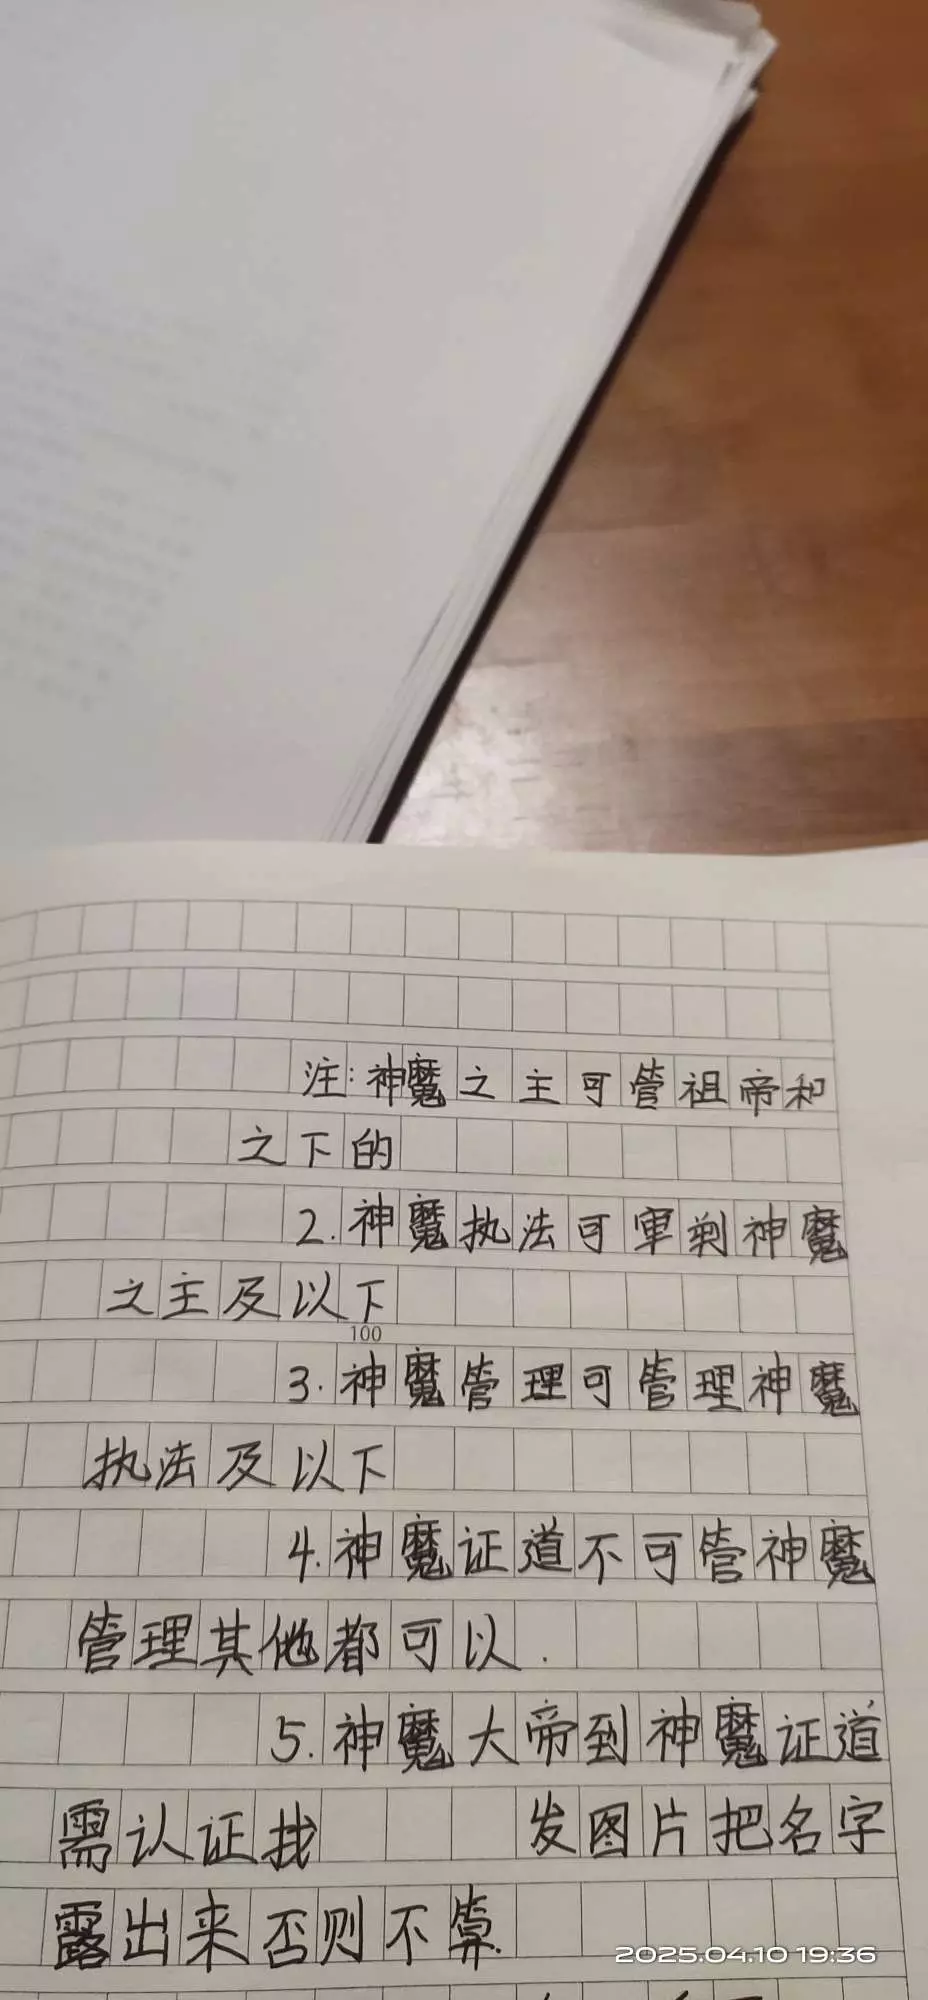 注:神魔之主可管祖帝和
之下的
2.神魔执法可军到神魔
之主及以下
100
3.神魔管理可管理神魔
执法及以下
4.神魔证道不可管神魔
管理其他都可以.
5.神魔大帝到神魔证道
需认证找 发图片把名字
露出来否则不算.
2025.04.10 19:36